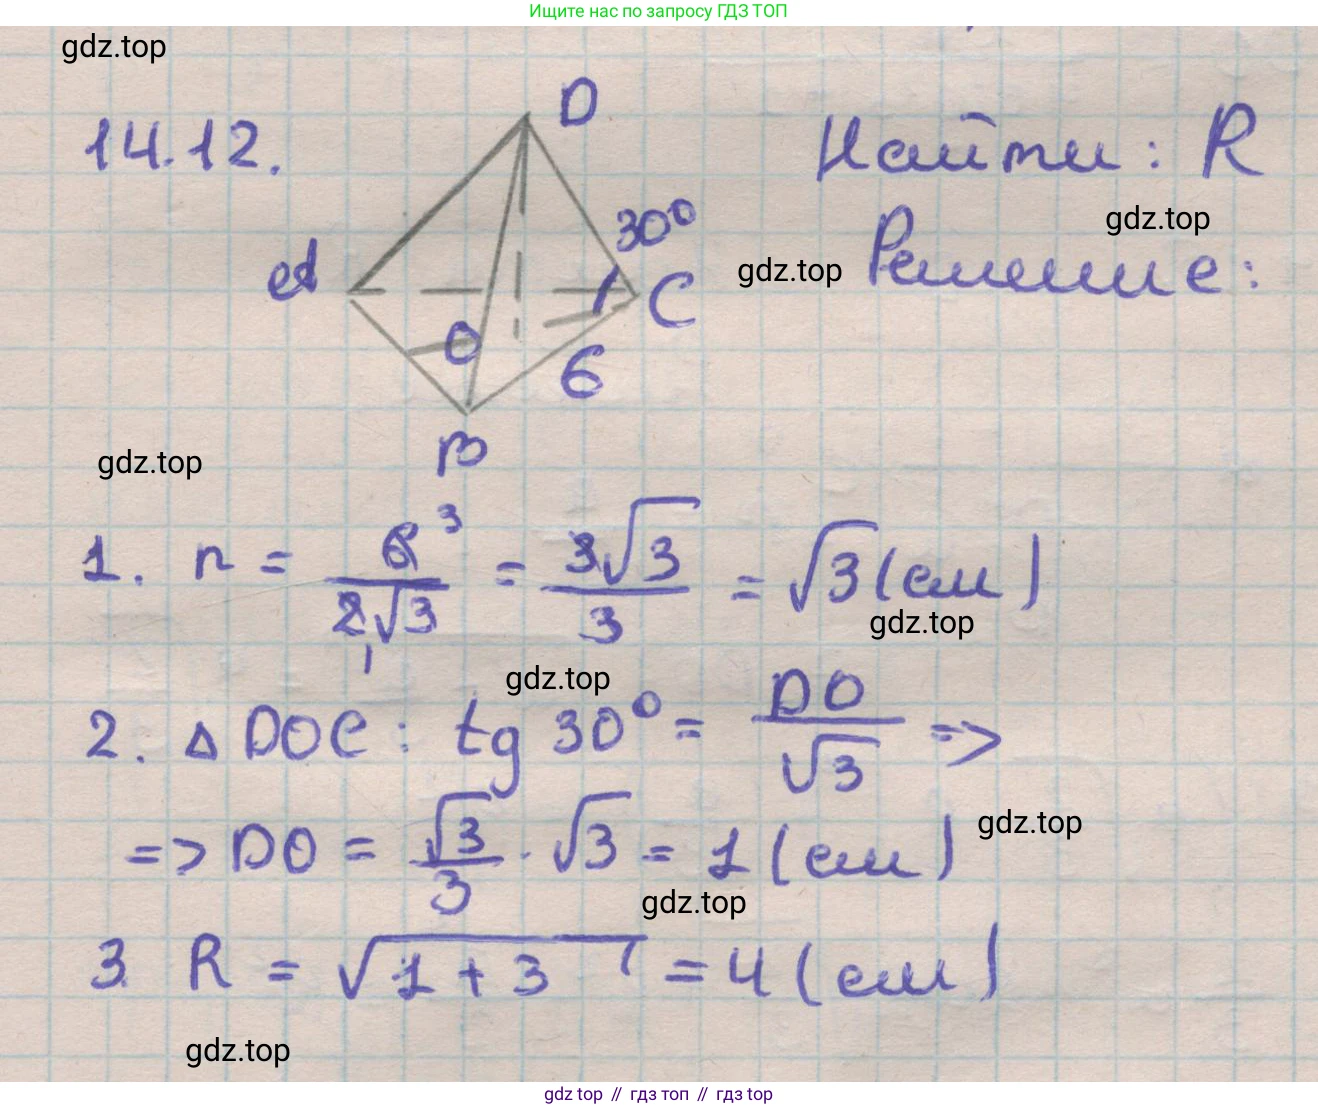 Ищите нас по запросу ГДЗ ТОП
gdz.top
14.12.
D
Найти: R
30°
gdz.top
A
gdz.top
Решение:
C
O
6
B
gdz.top
1. r = 6³/2√3 1 = 3√3/3 = √3 (см)
gdz.top
gdz.top
2. Δ DOC: tg 30° = DO/√3 =>
=> DO = √3/3 · √3 = 1 (см)
gdz.top
gdz.top
3. R = √1 + 3 = 4 (см)
gdz.top
gdz top // гдз топ // гдз top